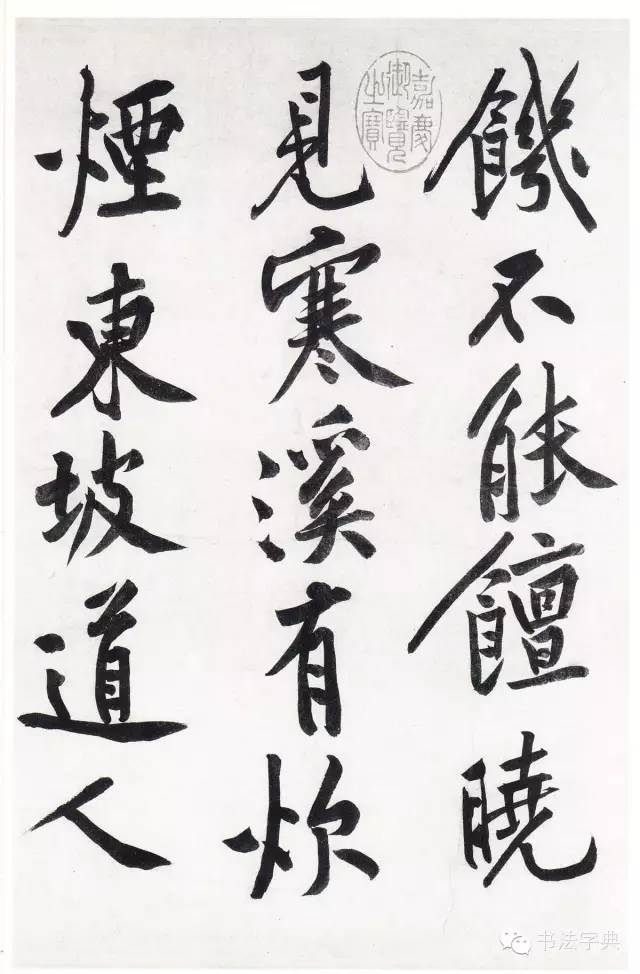 饑不能饘曉
見寒溪有炊
煙東坡道人
嘉慶
御覽
之寶
书法字典